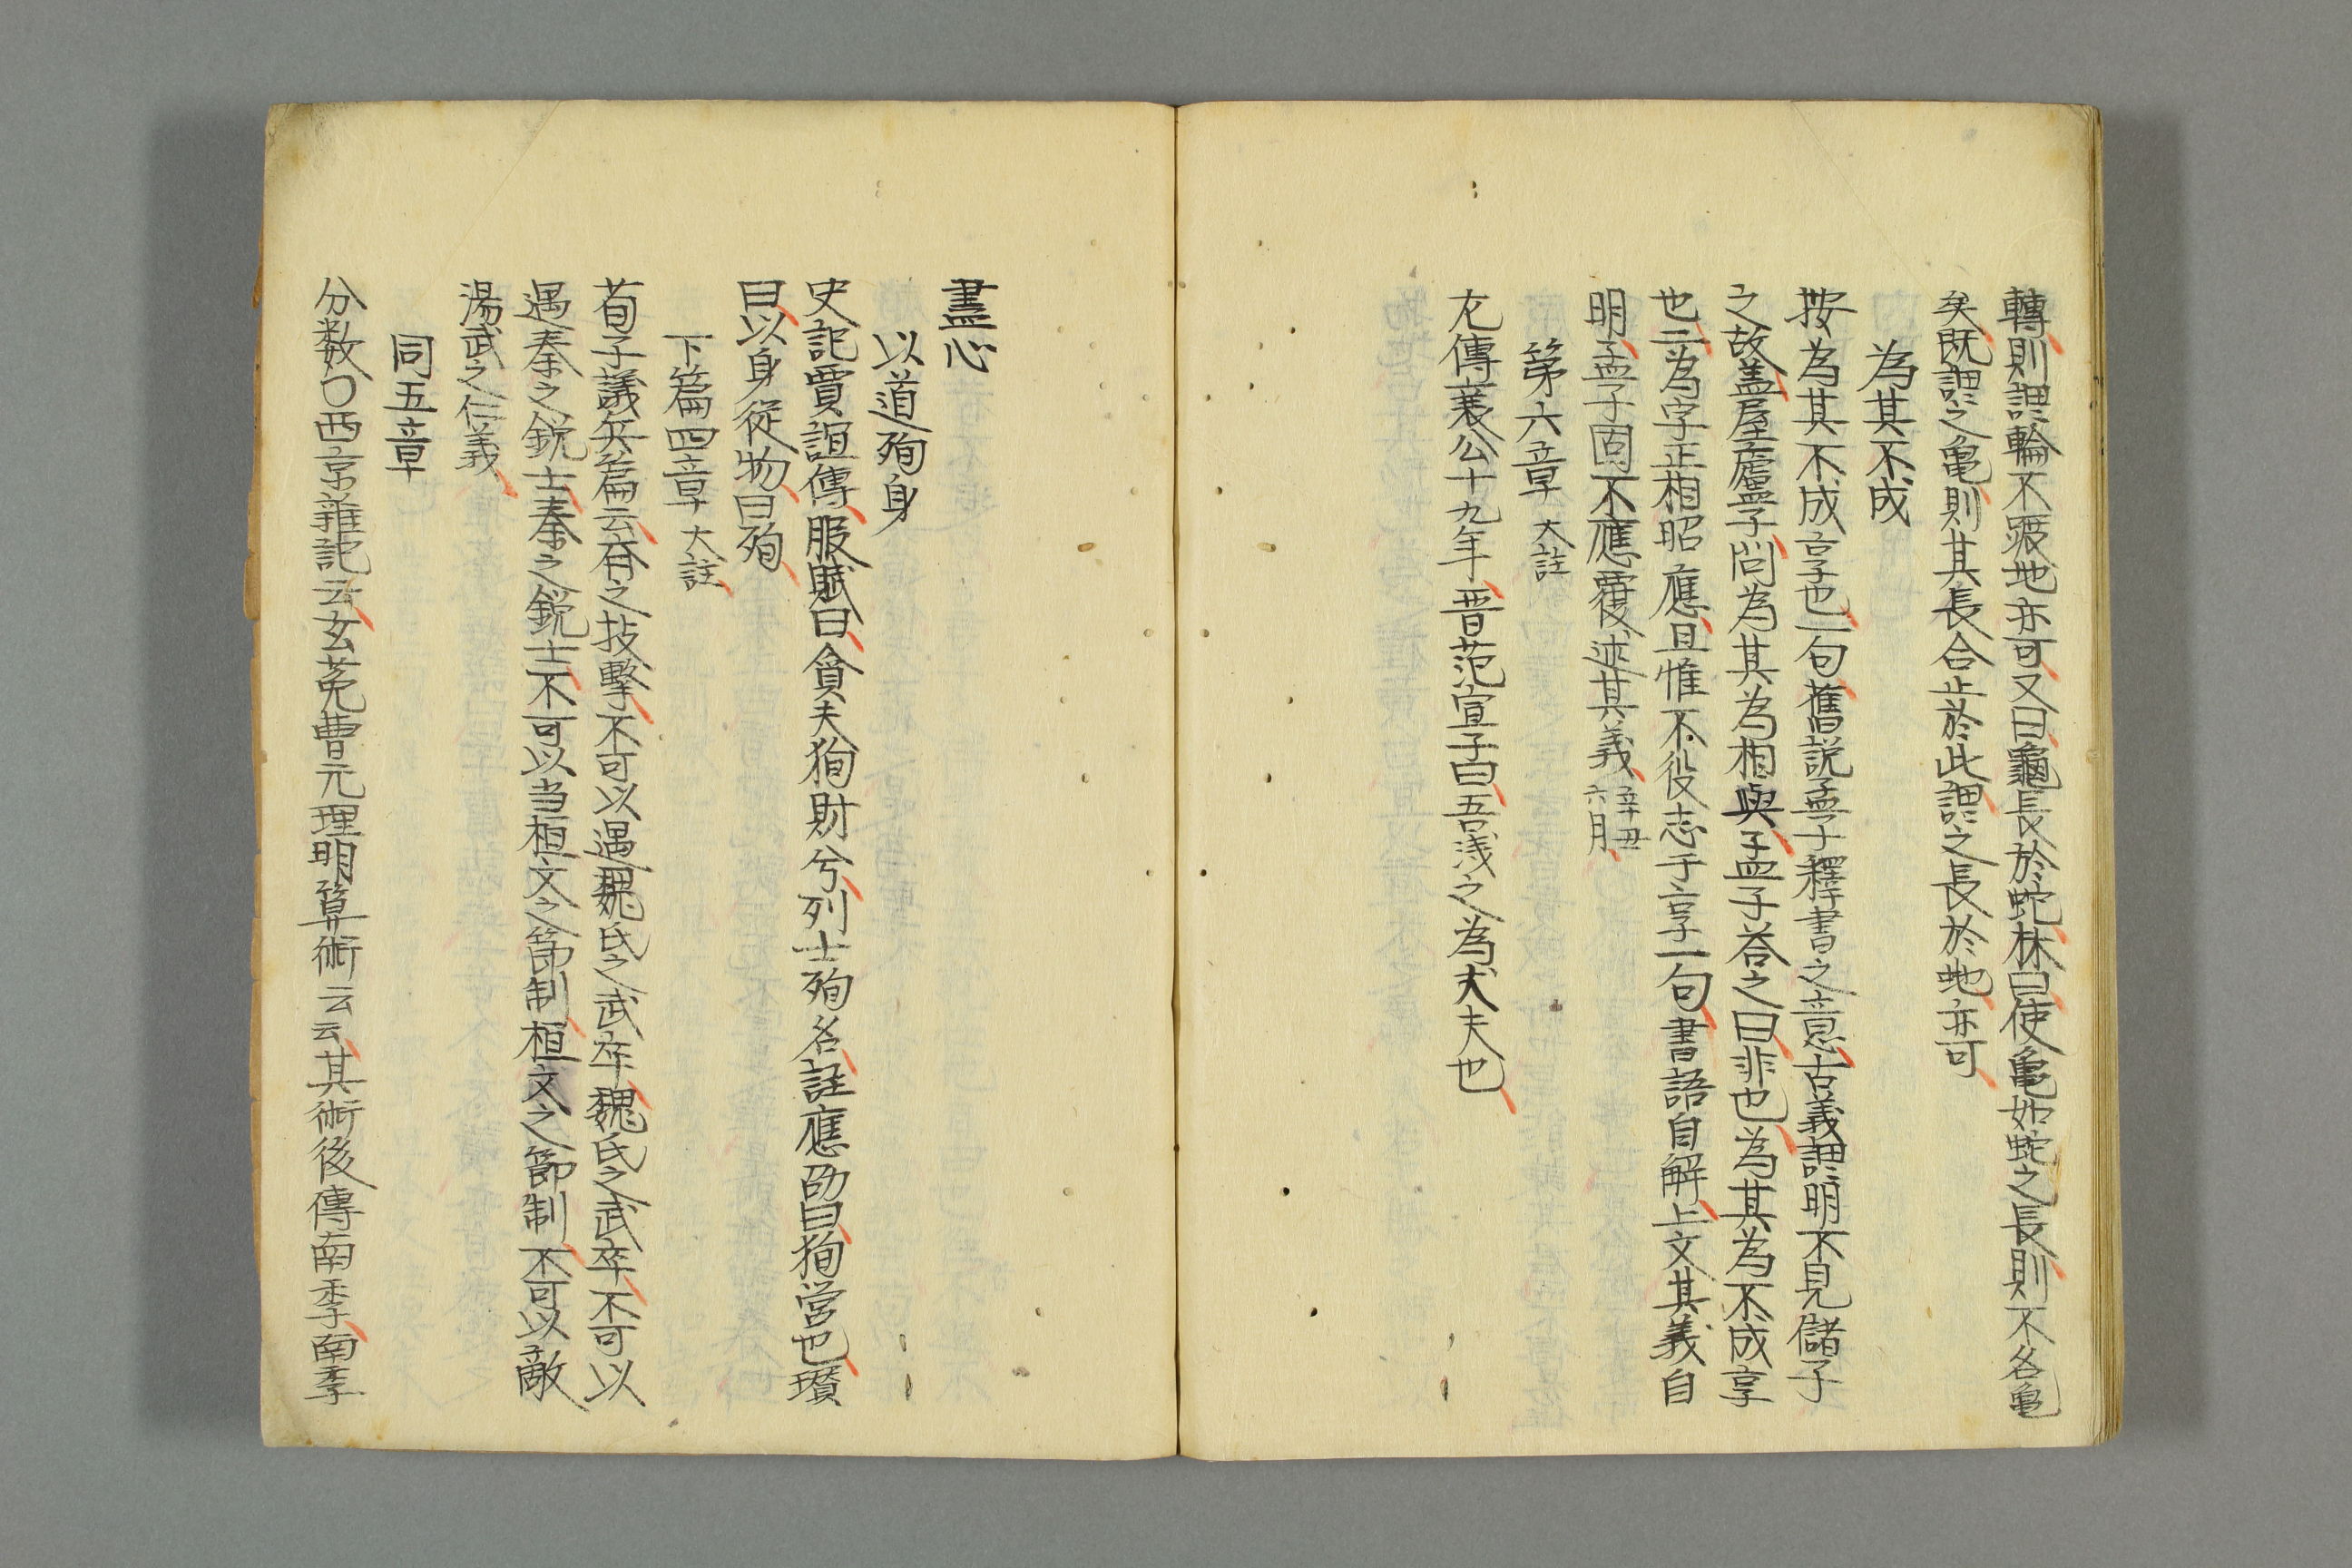 轉則謂輪不蹍地亦可又曰龜長於蛇林曰使亀如蛇之長則不名亀
矣既謂之亀則其長合止於此謂之長於虵亦可
為其不成
按為其不成享也一句舊説孟子釋書之意古義謂明不見儲子
之故盖屋廬子問為其為相與孟子荅之曰非也為其為不成享
也二為字正相昭應且惟不役志于享一句書語自解上文其義自
明孟子固不應覆述其義辛丑六月
第六章大註
左傳襄公十九年晋范宣子曰吾浅之為丈夫也
盡心
以道殉身
史記賈誼傳服賦曰貪夫狥財兮列士殉名註應劭曰狥営也瓉
曰以身從物曰殉
下篇四章大註
荀子議兵篇云斉之技擊不可以遇魏氏之武卒魏氏之武卒不可以
遇秦之鋭士秦之鋭士不可以当桓文之節制桓文之節制不可以敵
湯武之仁義
同五章
分数〇西京雑記云玄菟曹元理明算術云云其術後傳南季南季